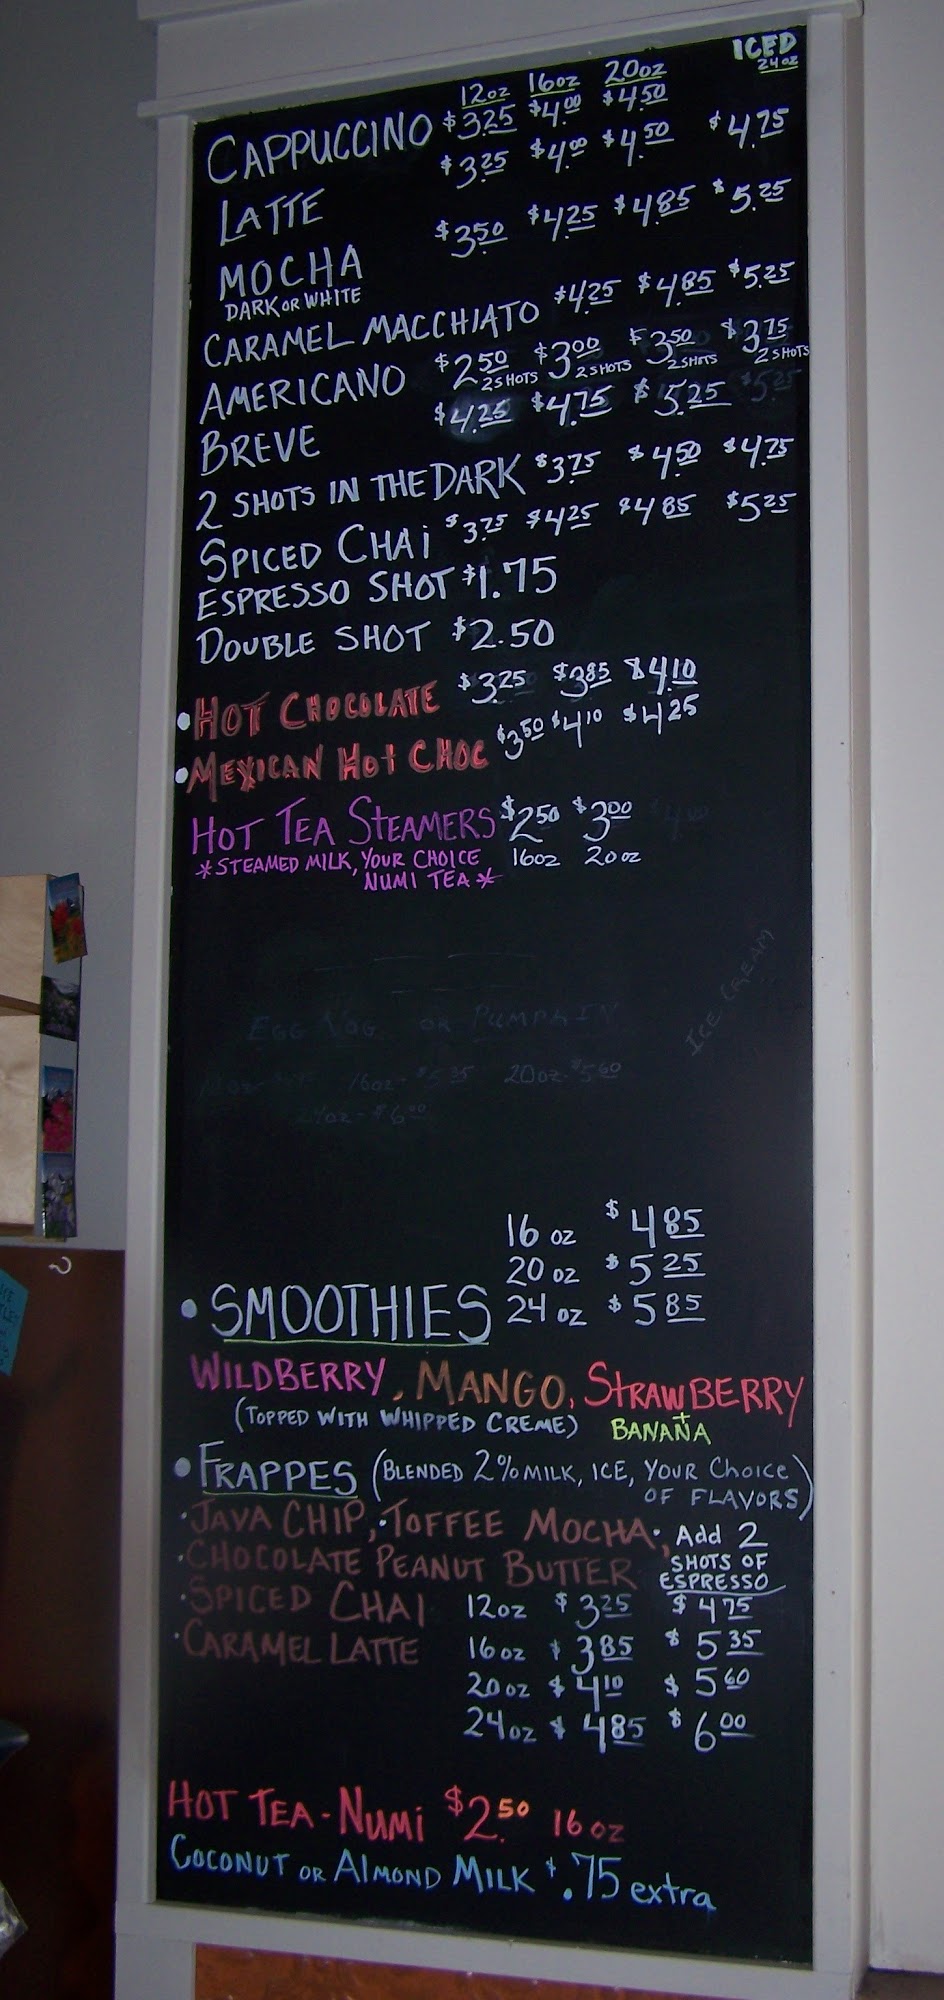 12oz 16oz 20oz ICED 24oz
CAPPUCCINO $3.25 $4.00 $4.50
LATTE $3.25 $4.00 $4.50 $4.75
MOCHA $3.50 $4.25 $4.85 $5.25
DARK OR WHITE
CARAMEL MACCHIATO $4.25 $4.85 $5.25
AMERICANO $2.50 $3.00 $3.50 $3.75
2 SHOTS 2 SHOTS 2 SHOTS 2 SHOTS
BREVE $4.25 $4.75 $5.25 $5.25
2 SHOTS IN THE DARK $3.75 $4.50 $4.75
SPICED CHAi $3.75 $4.25 $4.85 $5.25
ESPRESSO SHOT $1.75
DOUBLE SHOT $2.50
• HOT CHOCOLATE $3.25 $3.85 $4.10
• MEXICAN HOt CHOC $3.50 $4.10 $4.25
HOT TEA STEAMERS $2.50 $3.00 $4.00
*STEAMED MILK, YOUR CHOICE 16oz 20oz
NUMI TEA*
ICE CREAM
EGG NOG OR PUMPKIN
16oz - $5.35 20oz - $5.60
24oz - $6.00
16 oz $4.85
20 oz $5.25
• SMOOTHIES 24 oz $5.85
WILDBERRY, MANGO, STRAWBERRY
(TOPPED WITH WHIPPED CREME) + BANANA
• FRAPPES (BLENDED 2% MILK, ICE, YOUR CHoiCE
OF FLAVORS)
• JAVA CHIP, • TOFFEE MOCHA • Add 2
• CHOCOLATE PEANUT BUTTER SHOTS OF
ESPRESSO
• SPICED CHAI 12oz $3.25 $4.75
• CARAMEL LATTE 16oz $3.85 $5.35
20oz $4.10 $5.60
24oz $4.85 $6.00
HOT TEA - NUMi $2.50 16oz
COCONUT OR ALMOND MILK $.75 extra